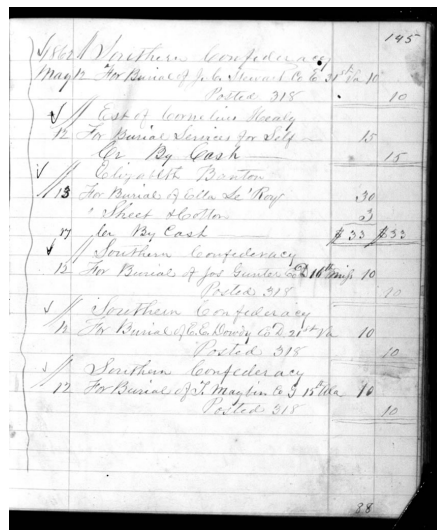 145
1862 // Southern Confederacy
May 12 For Burial of J. C. Stewart Co E 21st Va 10
Posted 318 10
// Est of Cornelius Healy
12 For Burial Services for Self 15
Cr By Cash 15
Elizabeth Benton
13 For Burial of Ella Le'Roy 30
" Sheet & Cotton 3
17 Cr By Cash $33 $33
// Southern Confederacy
12 For Burial of Jos Gunter Co D 16th Miss 10
Posted 318 10
// Southern Confederacy
12 For Burial of E. E. Dowdy Co D. 21st Va 10
Posted 318 10
// Southern Confederacy
12 For Burial of T. Maybin Co G 15th 10
Posted 318 10
88